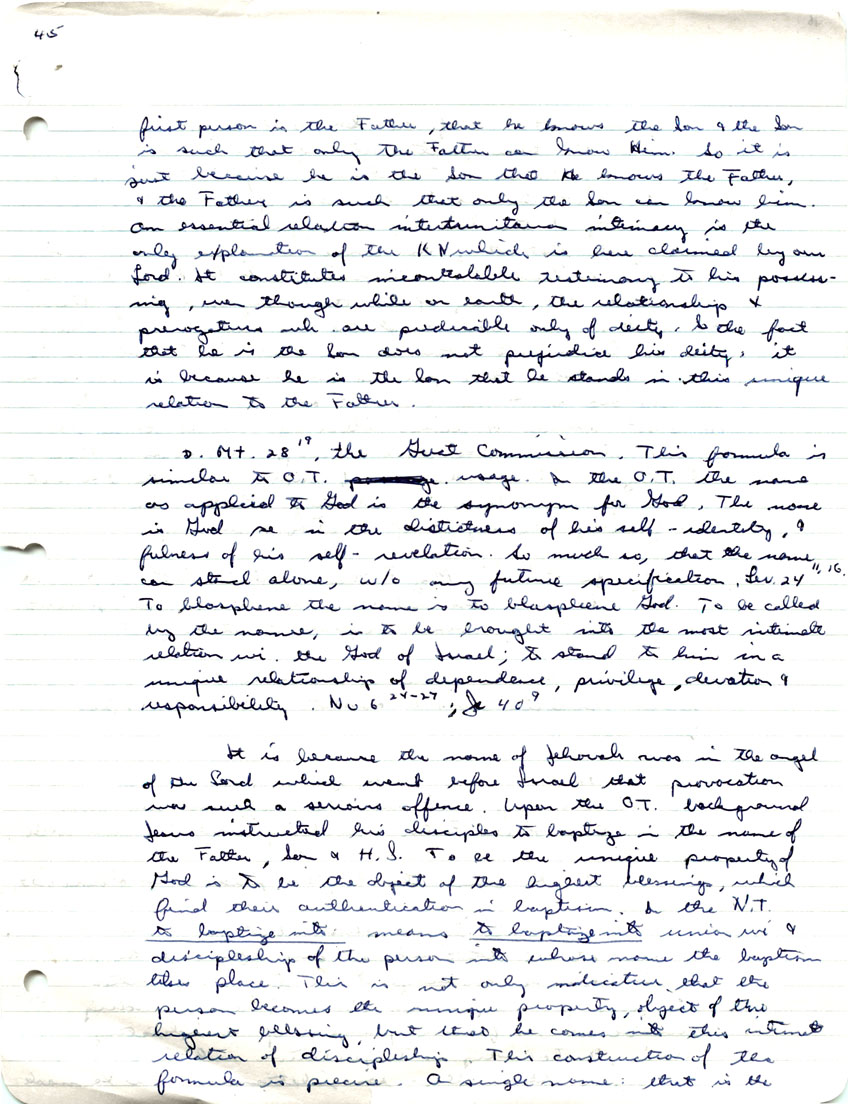 45
first person is the Father, that he knows the Son & the Son
is such that only the Father can know Him. So it is
just because he is the Son that He knows the Father,
& the Father is such that only the Son can know him.
An essential relation intertrinitarian intimacy is the
only explanation of the KN which is here claimed by our
Lord. It constitutes incontestable testimony to his possess-
ing, even though while on earth, the relationship &
prerogatives wh. are predicable only of deity. So the fact
that he is the Son does not prejudice his deity, it
is because he is the Son that he stands in this unique
relation to the Father.
D. Mt. 28 19, the Great Commission. This formula is
similar to O.T. usage. In the O.T. the name
as applied to God is the synonym for God. The name
is God se in the distictness of his self-identity, &
fulness of his self-revelation. So much so, that the name
can stand alone, w/o any future specification, Lev. 24 11, 16.
To blaspheme the name is to blaspheme God. To be called
by the name, is to be brought into the most intimate
relation wi. the God of Israel; to stand to him in a
unique relationship of dependence, privilege, devotion &
responsibility. Nu 6 24-27; 40 9
It is because the name of Jehovah was in the angel
of the Lord which went before Israel that provocation
was such a serious offence. Upon the OT. background
Jesus instructed his disciples to baptize in the name of
the Father, Son & H.S. To be the unique property of
God is to be the object of the highest blessings, which
find their authentication in baptism. In the N.T.
to baptize into means to baptize into union wi &
discipleship of the person into whose name the baptism
takes place. This is not only indicative that the
person becomes the unique property, object of the
highest blessing, but that he comes into this intimate
relation of discipleship. This construction of the
formula is precise. A single name: that is the